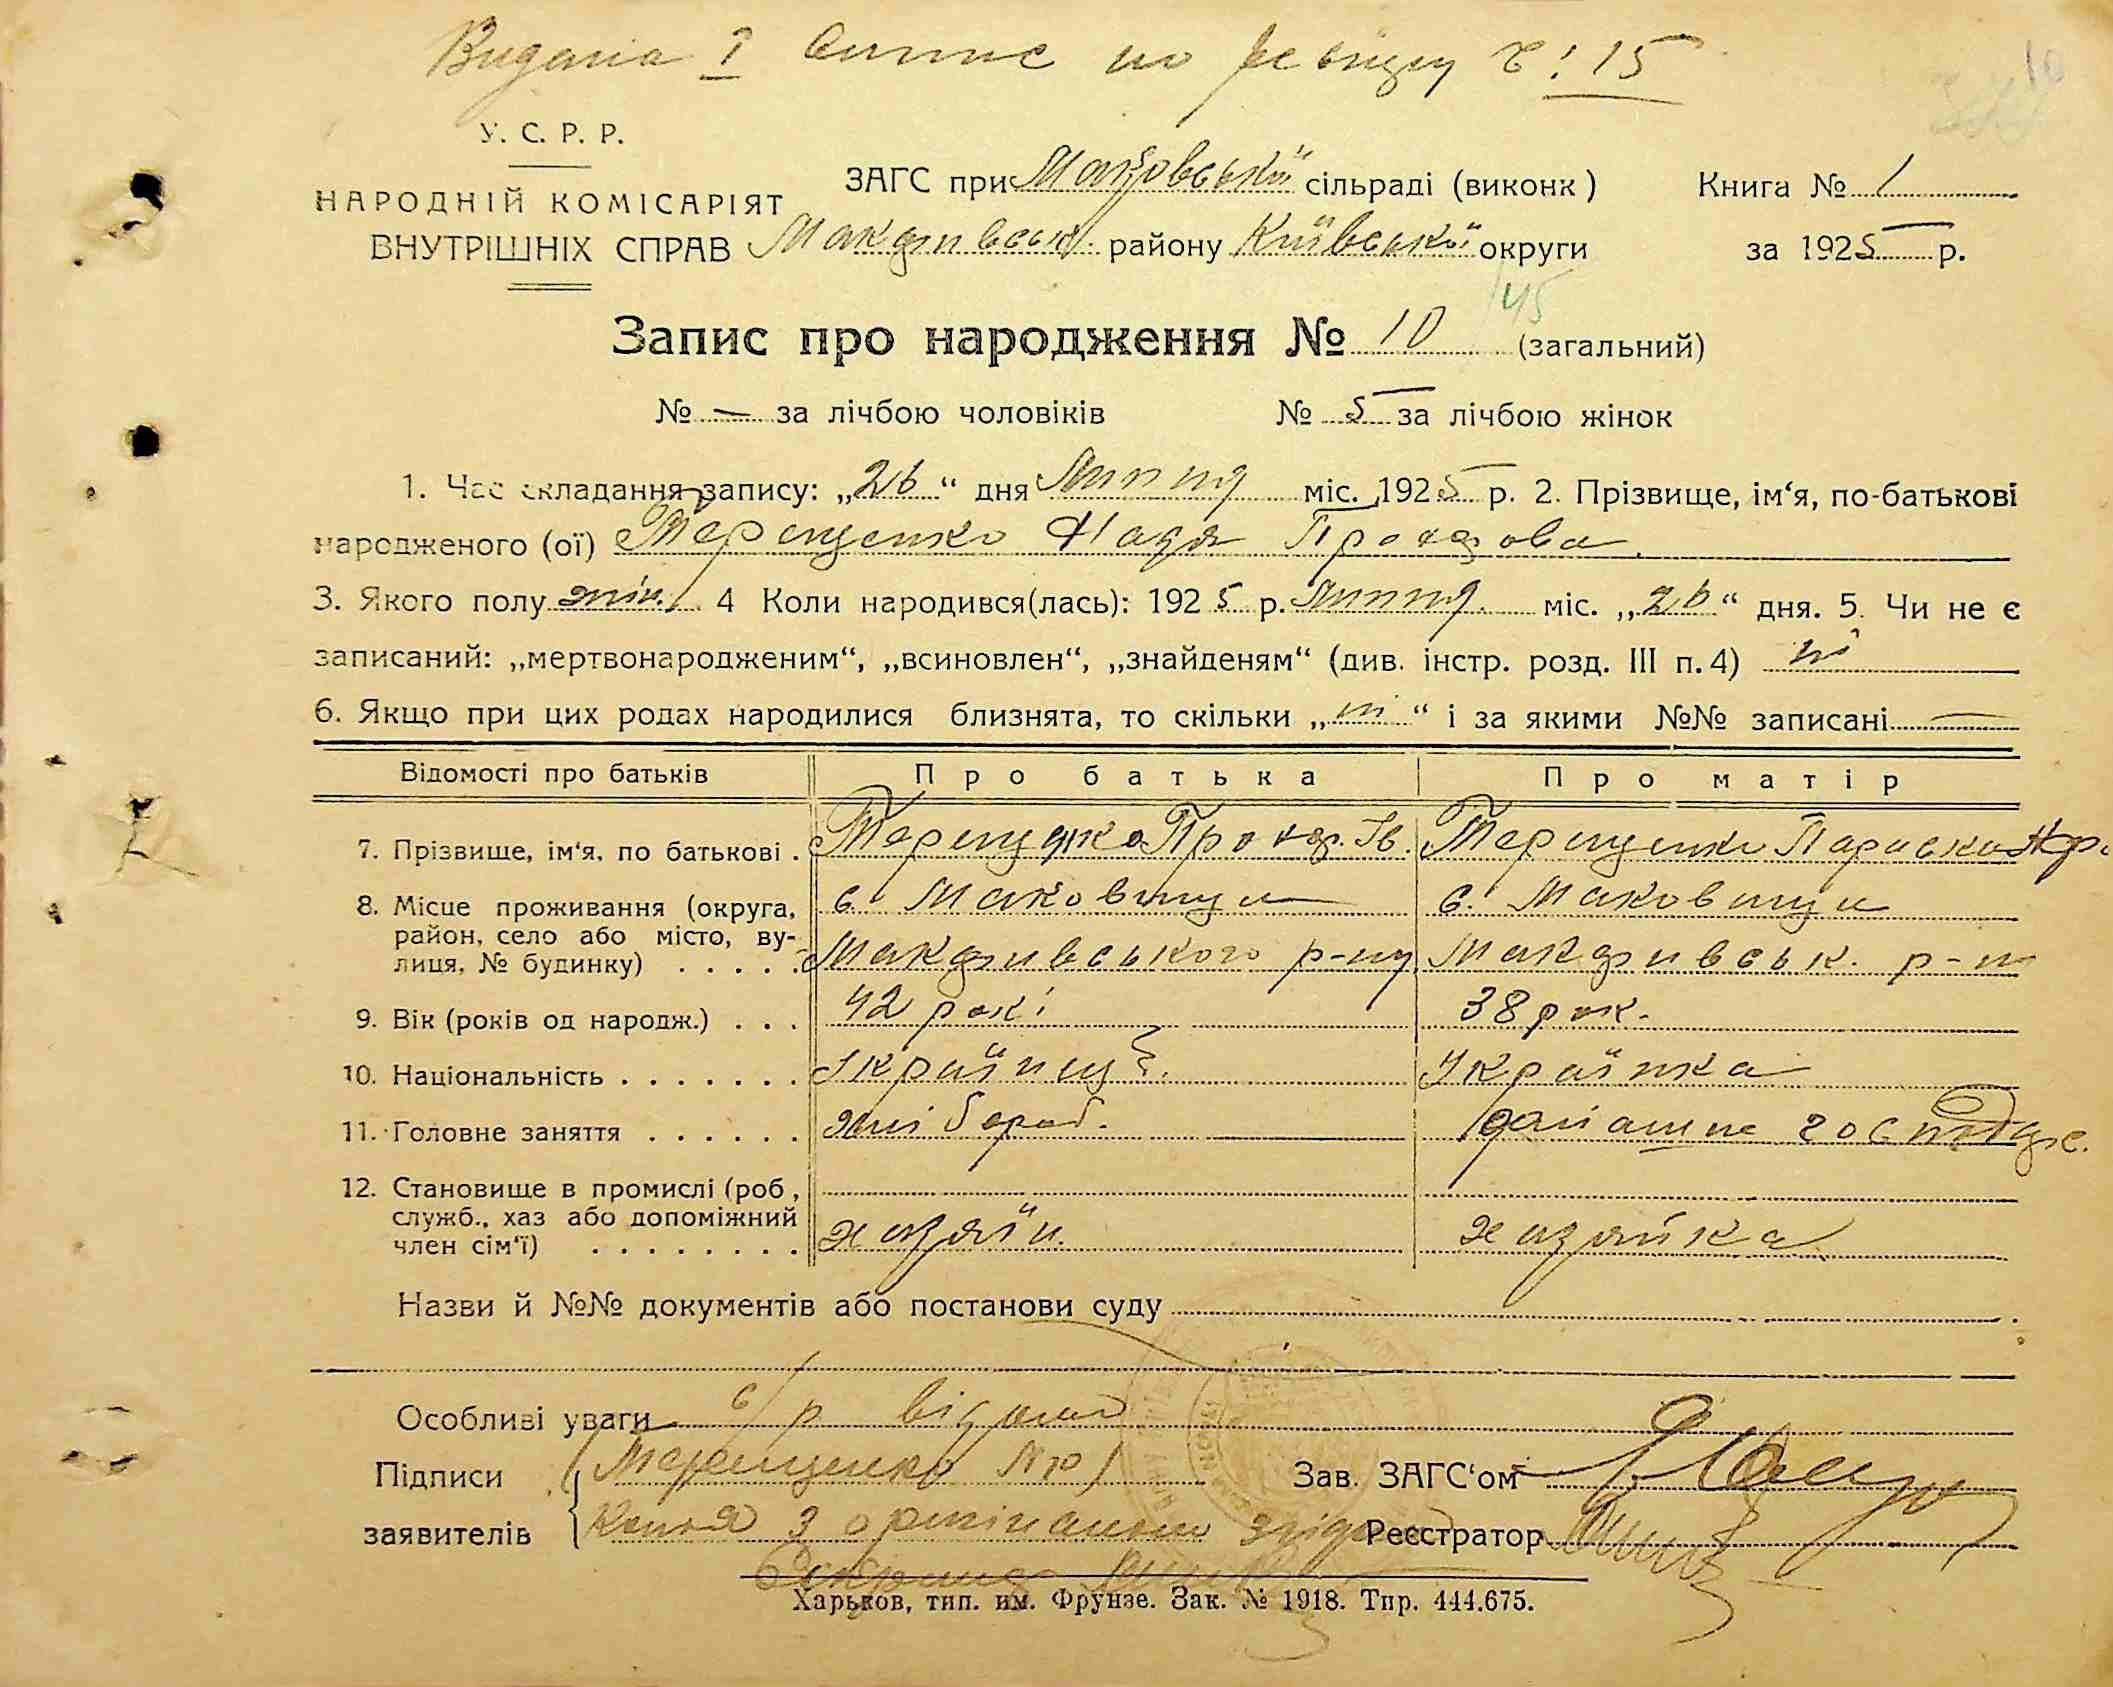 Видана І Витис по № 15
10
У. С. Р. Р.
НАРОДНІЙ КОМІСАРІЯТ
ВНУТРІШНІХ СПРАВ
ЗАГС при сільраді (виконк)
Макарівськ. району Київської округи
Книга № 1
за 1925 р.
145
Запис про народження № 10 (загальний)
№ — за лічбою чоловіків № 5 за лічбою жінок
1. Час складання запису: „26“ дня Липня міс. 1925 р. 2. Прізвище, ім‘я, по-батькові
народженого (ої) Терещенко Надя Прокопова
3. Якого полу жін. 4 Коли народився(лась): 1925 р. Липня міс. „26“ дня. 5. Чи не є
записаний: „мертвонародженим“, „всиновлен“, „знайденям“ (див. інстр. розд. III п. 4) ні
6. Якщо при цих родах народилися близнята, то скільки „ні“ і за якими №№ записані —
Відомості про батьків Про батька Про матір
7. Прізвище, ім‘я, по батькові . Терещенко Прокоп. Ів. Терещенко Параска
8. Місце проживання (округа, с. Маковищи с. Маковищи
район, село або місто, ву-
лиця, № будинку) . . . . . Макарівського р-ну Макарівськ. р-н
9. Вік (років од народж.) . . . 42 рокі 38 рок.
10. Національність . . . . . . . Українець. Українка
11. Головне заняття . . . . . . хлібороб. домашне господар.
12. Становище в промислі (роб,
служб., хаз або допоміжний
член сім‘ї) . . . . . . . . хазяїн. хазяйка
Назви й №№ документів або постанови суду
Особливі уваги с/р відомо
Підписи Терещенко Зав. ЗАГС‘ом
заявителів Копія з оригіналом згідна Реєстратор
Секретар
Харьков, тип. им. Фрунзе. Зак. № 1918. Тир. 444.675.